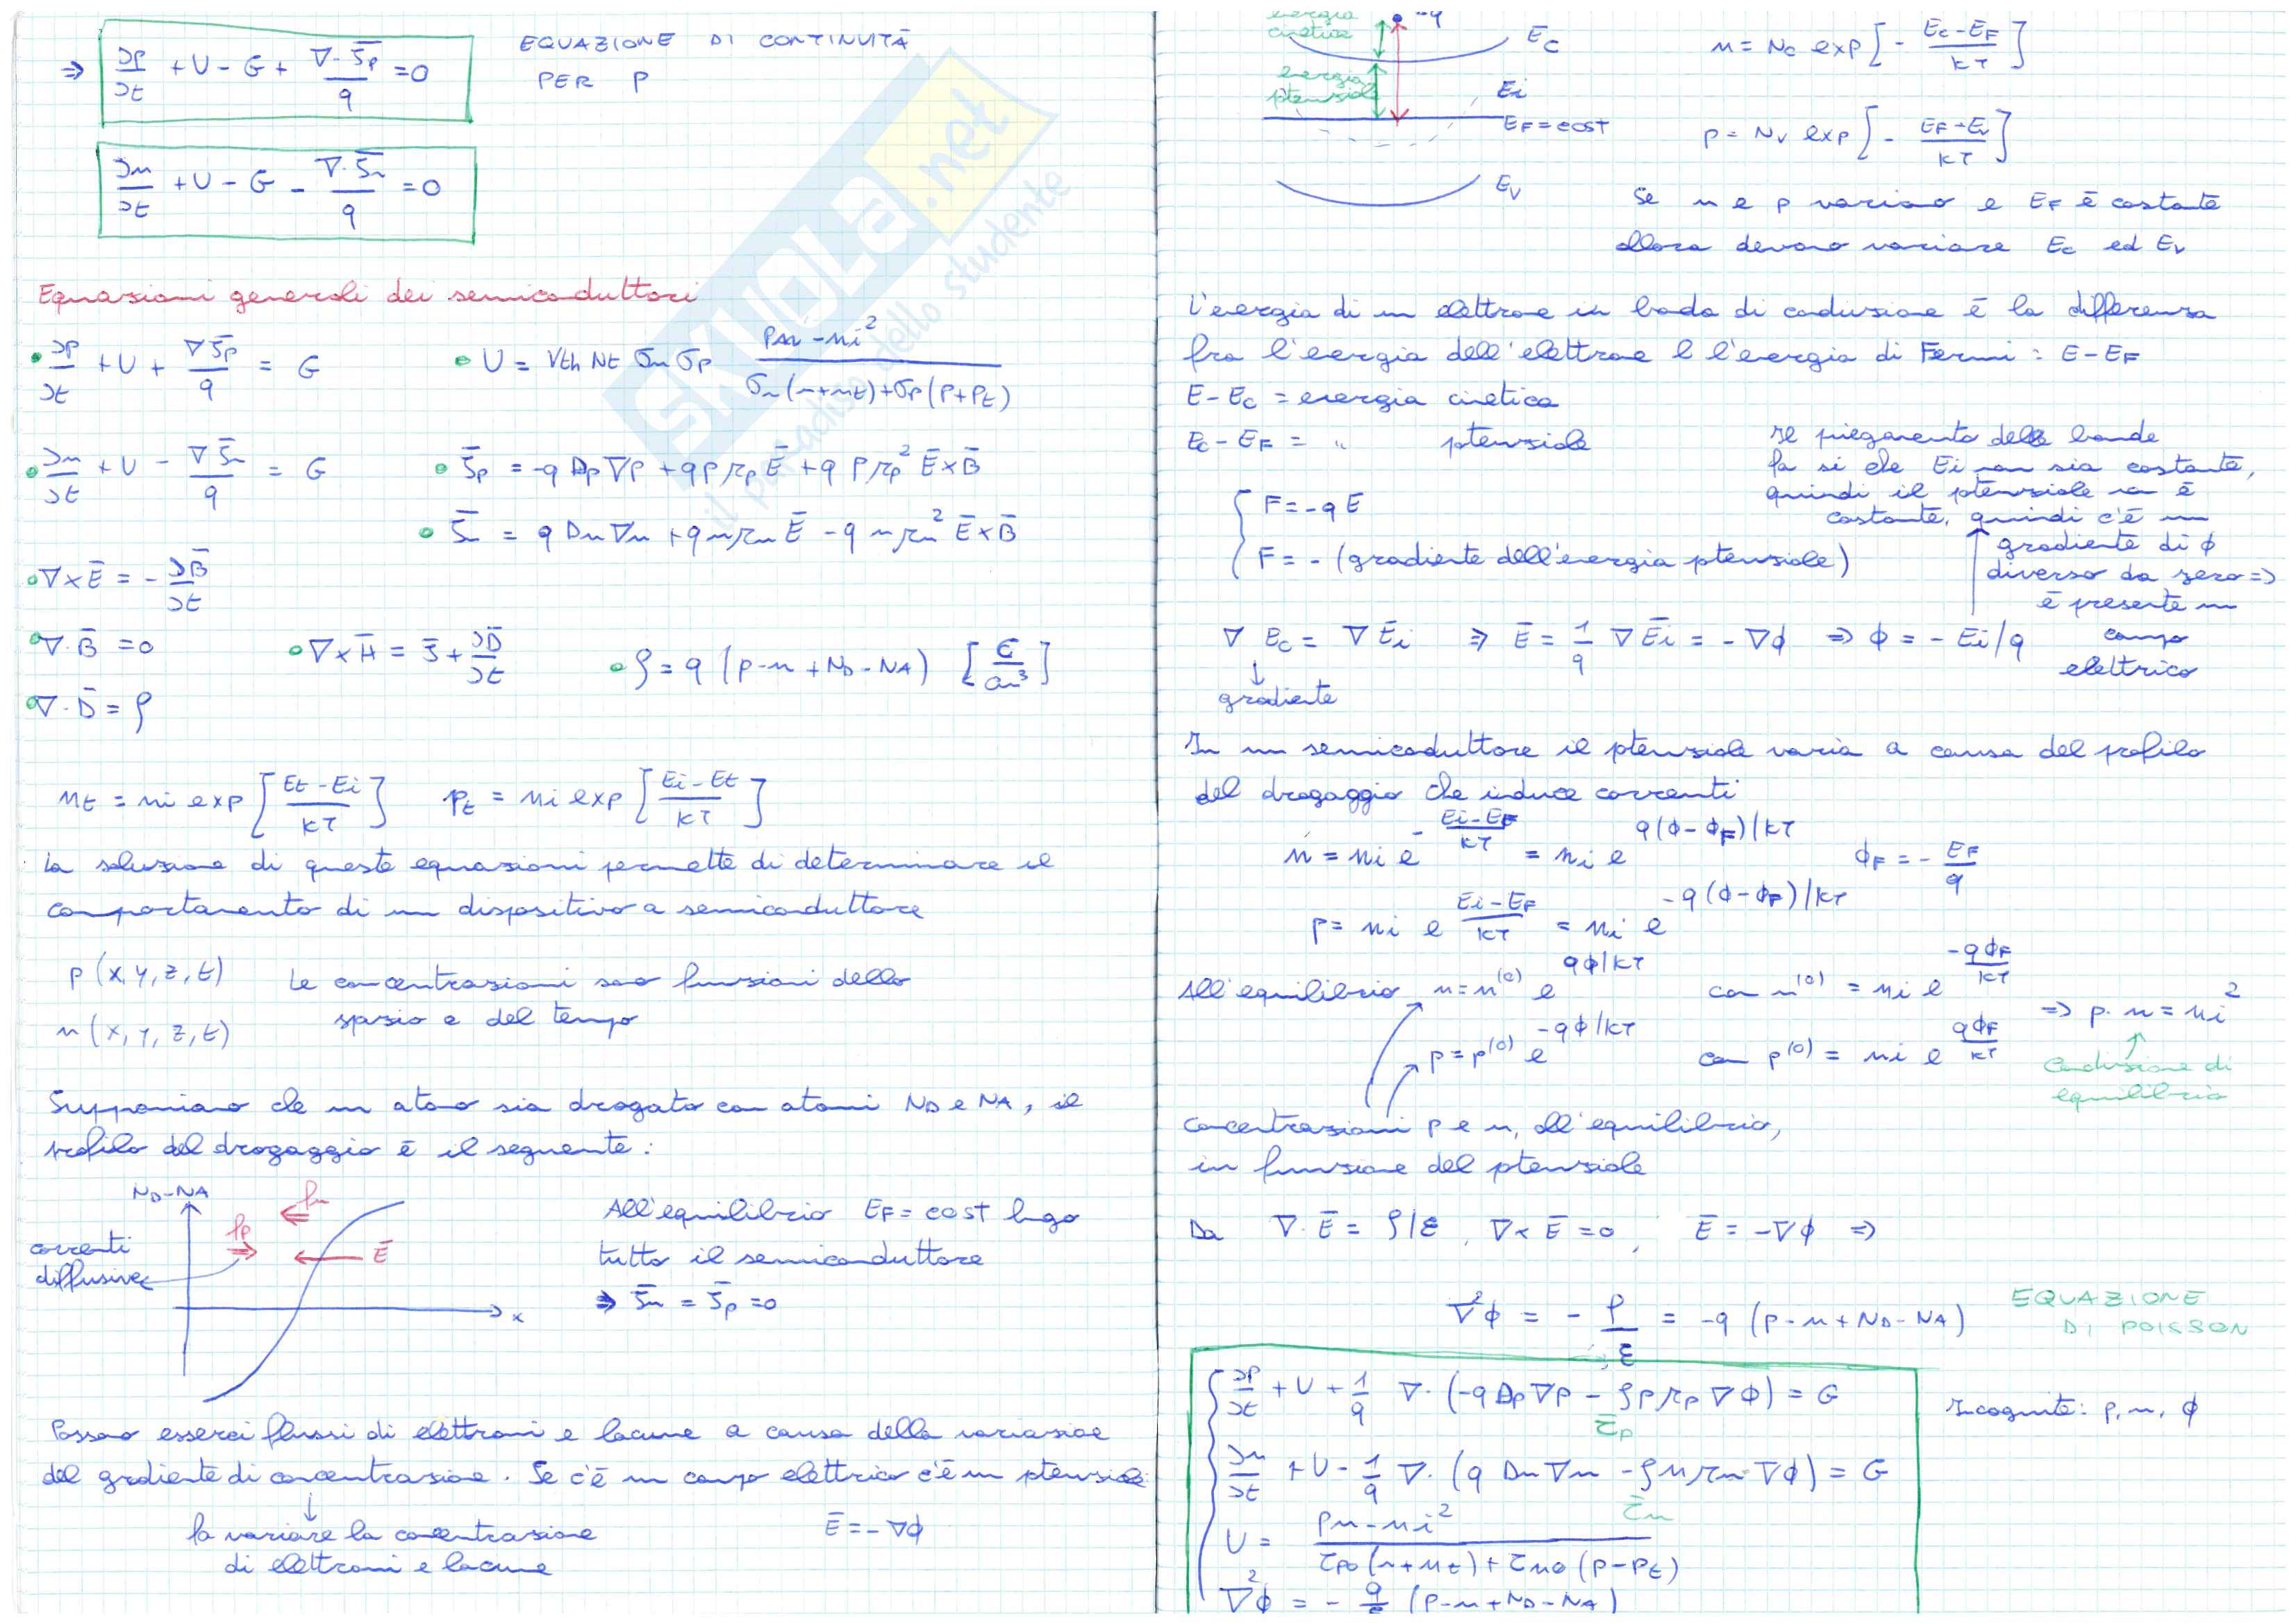 ⇒ ∂p/∂t + U - G + ∇·J̄p/q = 0
EQUAZIONE DI CONTINUITÀ
PER P
∂n/∂t + U - G - ∇·J̄n/q = 0
Equazioni generali dei semiconduttori
• ∂p/∂t + U + ∇J̄p/q = G
• U = Vth Nt σn σp (pn - ni²)/(σn(n+nt)+σp(p+pt))
• ∂n/∂t + U - ∇J̄n/q = G
• J̄p = -q Dp ∇p + q p μp Ē + q p μp² Ē×B̄
• J̄n = q Dn ∇n + q n μn Ē - q n μn² Ē×B̄
• ∇×Ē = - ∂B̄/∂t
• ∇·B̄ = 0
• ∇×H̄ = J̄ + ∂D̄/∂t
• ρ = q (p-n+ND-NA) [C/cm³]
• ∇·D̄ = ρ
nt = ni exp[(Et-Ei)/kT]
pt = ni exp[(Ei-Et)/kT]
La soluzione di queste equazioni permette di determinare il
comportamento di un dispositivo a semiconduttore
p(x,y,z,t)
n(x,y,z,t)
Le concentrazioni sono funzioni dello
spazio e del tempo
Supponiamo che un atomo sia drogato con atomi ND e NA, il
profilo del drogaggio è il seguente:
ND-NA
fn
fp
Ē
correnti
diffusive
x
All'equilibrio EF = cost lungo
tutto il semiconduttore
⇒ J̄n = J̄p = 0
Possono esserci flussi di elettroni e lacune a causa della variazione
del gradiente di concentrazione. Se c'è un campo elettrico c'è un potenziale
↓
fa variare la concentrazione
di elettroni e lacune
Ē = -∇ϕ
SKUOLA.net
il paradiso dello studente
energia
cinetica
energia
potenziale
-q
EC
Ei
EF = cost
EV
n = NC exp[-(EC-EF)/kT]
p = NV exp[-(EF-EV)/kT]
Se n e p variano e EF è costante
allora devono variare EC ed EV
L'energia di un elettrone in banda di conduzione è la differenza
fra l'energia dell'elettrone e l'energia di Fermi: E-EF
E-EC = energia cinetica
EC-EF = " potenziale
Il piegamento delle bande
fa si che Ei non sia costante,
quindi il potenziale non è
costante, quindi c'è un
gradiente di ϕ
diverso da zero ⇒
è presente un
campo
elettrico
F = -qE
F = - (gradiente dell'energia potenziale)
∇EC = ∇Ēi ⇒ Ē = 1/q ∇Ēi = -∇ϕ ⇒ ϕ = -Ei/q
↓
gradiente
In un semiconduttore il potenziale varia a causa del profilo
del drogaggio che induce correnti
n = ni e^(-(Ei-EF)/kT) = ni e^(q(ϕ-ϕF)/kT)
ϕF = - EF/q
p = ni e^((Ei-EF)/kT) = ni e^(-q(ϕ-ϕF)/kT)
All'equilibrio n = n⁽⁰⁾ e^(qϕ/kT)
con n⁽⁰⁾ = ni e^(-qϕF/kT)
p = p⁽⁰⁾ e^(-qϕ/kT)
con p⁽⁰⁾ = ni e^(qϕF/kT)
⇒ p·n = ni²
Condizione di
equilibrio
concentrazioni p e n, all'equilibrio,
in funzione del potenziale
Da ∇·Ē = ρ/ε, ∇×Ē = 0, Ē = -∇ϕ ⇒
∇²ϕ = - ρ/ε = -q (p-n+ND-NA)
EQUAZIONE
DI POISSON
∂p/∂t + U + 1/q ∇·(-q Dp ∇p - ρ p μp ∇ϕ) = G
J̄p
∂n/∂t + U - 1/q ∇·(q Dn ∇n - ρ n μn ∇ϕ) = G
J̄n
U = (pn-ni²)/(τp0(n+nt)+τn0(p-pt))
∇²ϕ = - q/ε (p-n+ND-NA)
Incognite: p, n, ϕ